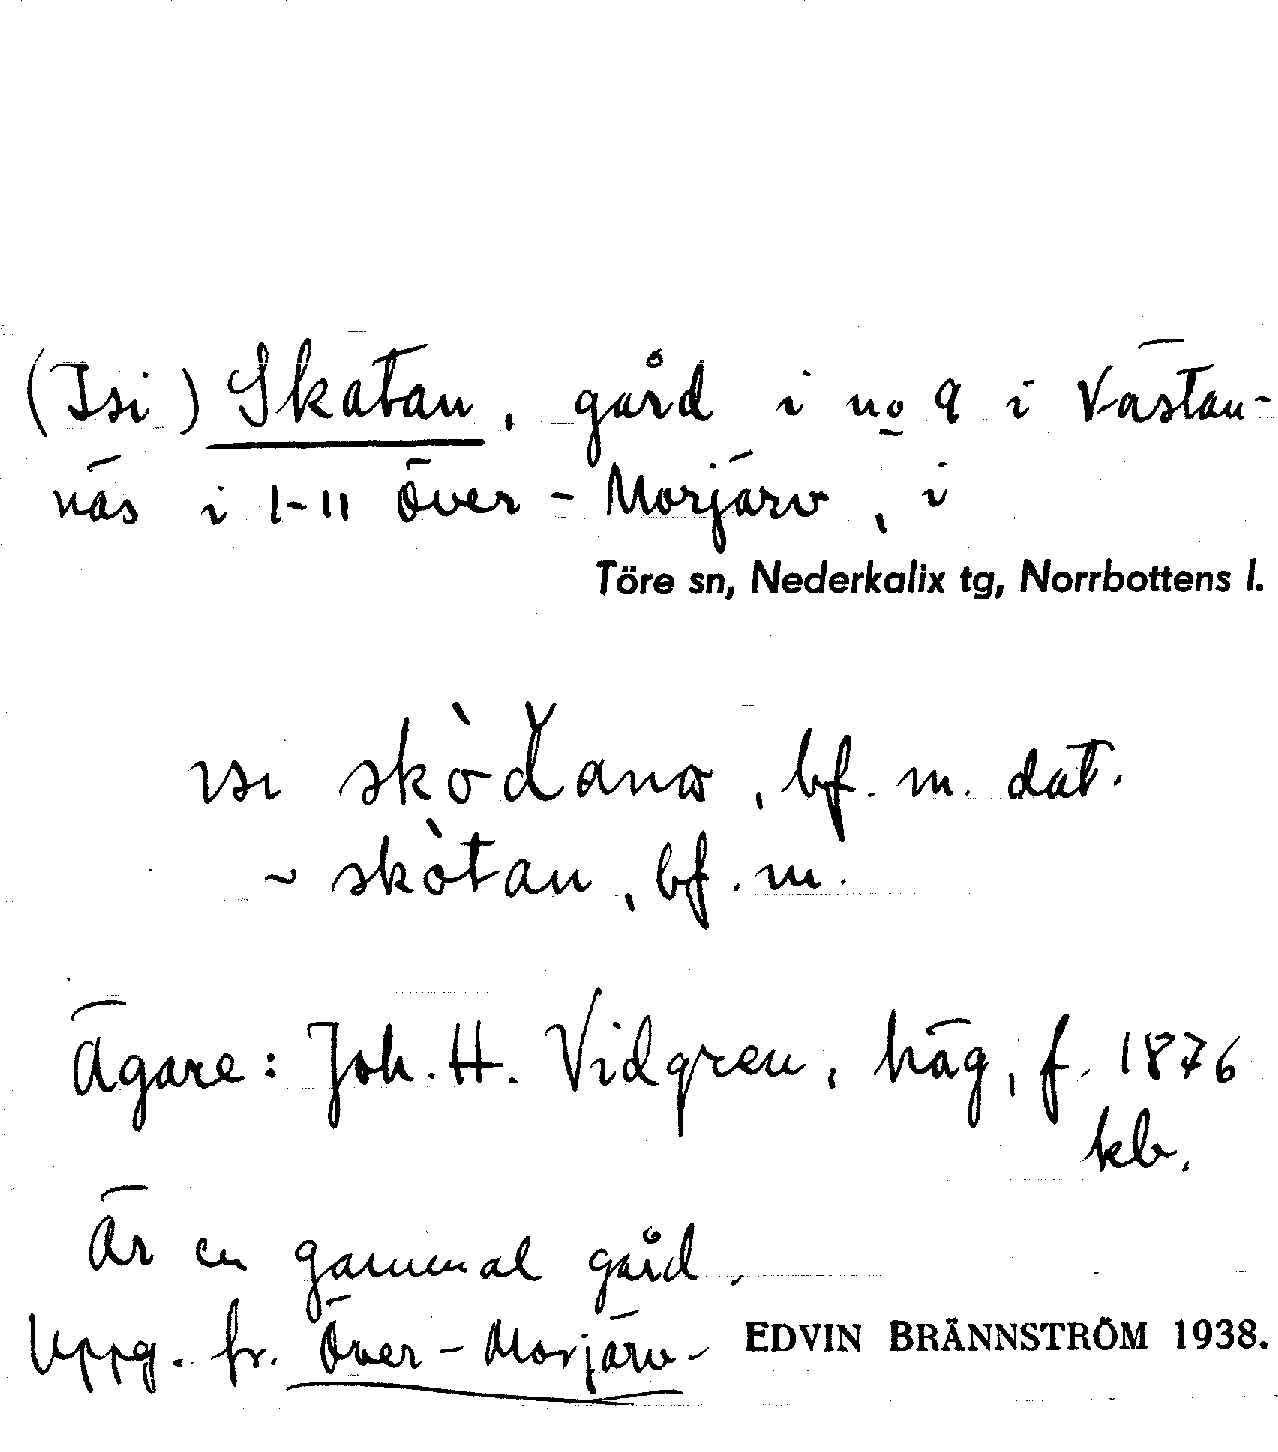 (Isi) Skatan, gård i no 9 i Västan-
näs i 1-11 Över-Morjärv, i
Töre sn, Nederkalix tg, Norrbottens l.
ɩsɩ skòd̆anα, bf. m. dat.
~ skòtan, bf. m.
Ägare: Joh. H. Vidgren, häg, f. 1876
kb.
Är en gammal gård.
Uppg. fr. Över-Morjärv-
EDVIN BRÄNNSTRÖM 1938.